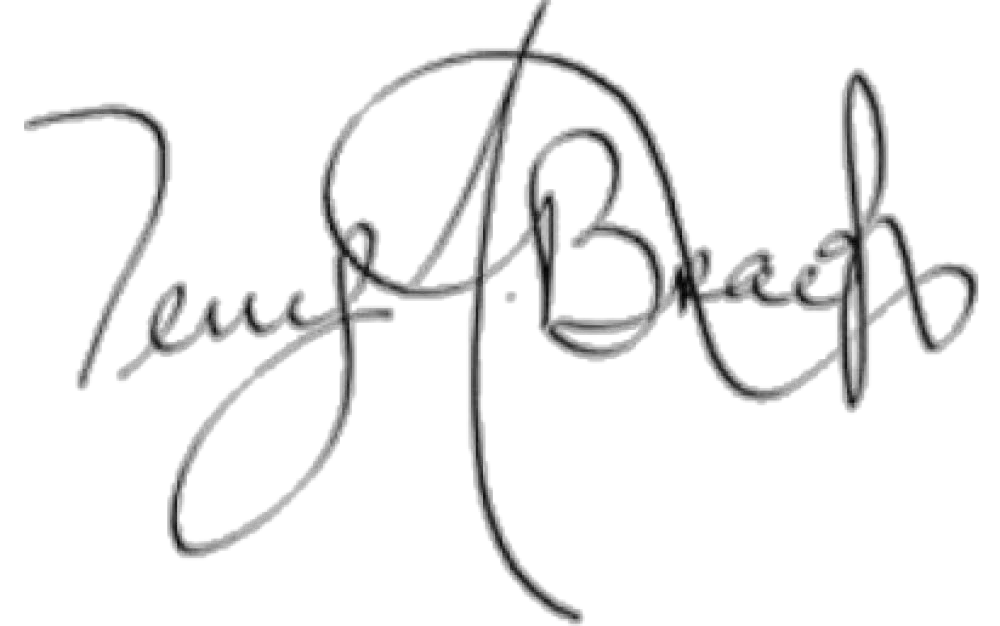 Terry A. Beach